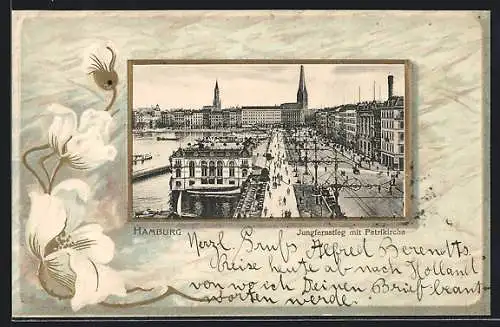 HAMBURG
Jungfernstieg mit Petrikirche
Herzl. Gruß Alfred Berendts
Reise heute ab nach Holland
von wo ich Deinen Brief beant
worten werde.